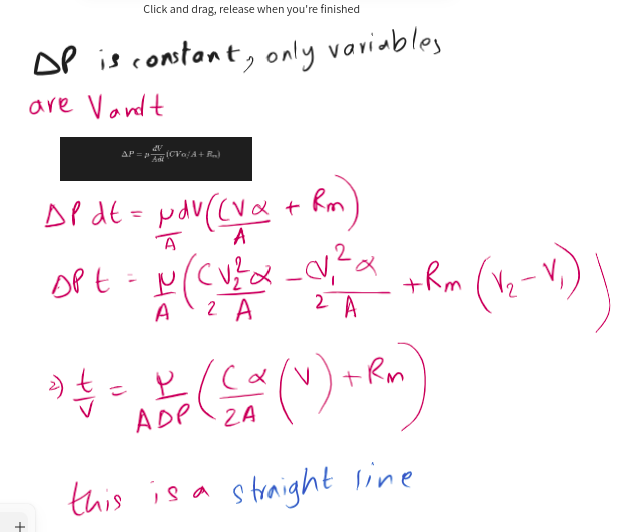 Click and drag, release when you're finished
ΔP is constant, only variables
are V and t
ΔP = μ dV/Adt (CVα/A + Rm)
ΔP dt = μdV/A (CVα/A + Rm)
ΔP t = μ/A (CV₂²α/2A - CV₁²α/2A + Rm (V₂-V₁))
⇒ t/V = μ/AΔP (Cα/2A (V) + Rm)
this is a straight line
+